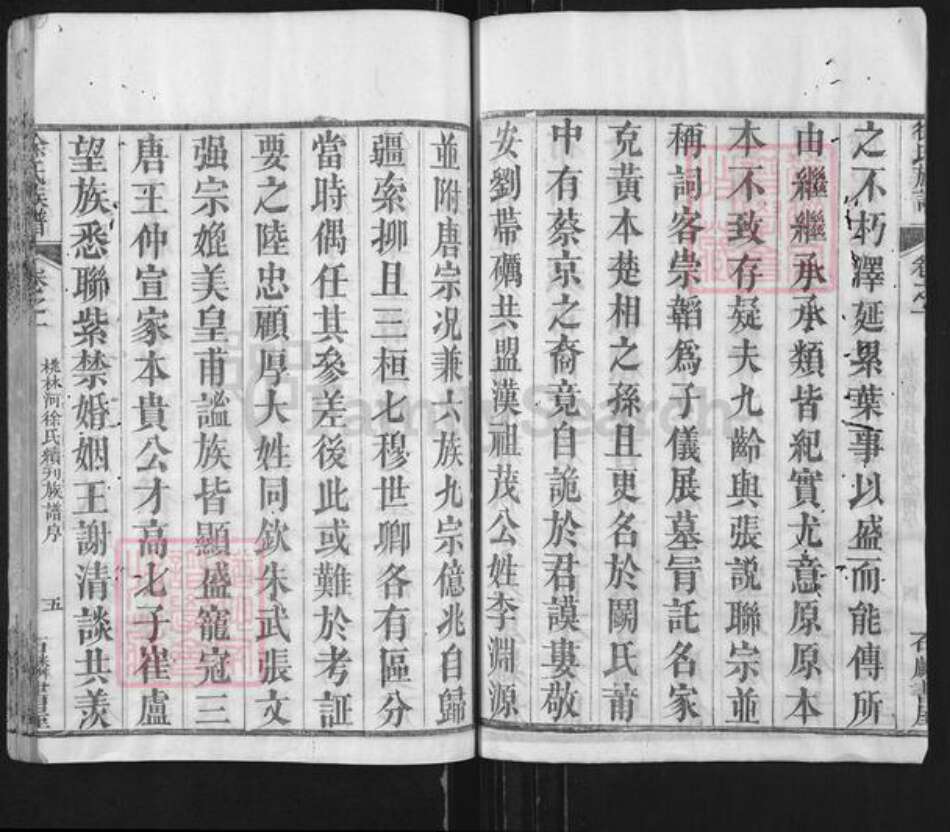 之不朽澤延累葉事以盛而能傳所
由繼繼承承類皆紀實尤意原原本
本不致存疑夫九齡與張説聯宗並
稱詞客崇韜爲子儀展墓冐託名家
克黃本楚相之孫且更名於鬬氏莆
中有蔡京之裔竟自詭於君謨婁敬
安劉帶礪共盟漢祖茂公姓李淵源
並附唐宗况兼六族九宗億兆自歸
疆索抑且三桓七穆世卿各有區分
當時偶任其參差後此或難於考証
要之陸忠顧厚大姓同欽朱武張文
强宗媲美皇甫謐族皆顯盛寵冠三
唐王仲宣家本貴公才高七子崔盧
望族悉聯紫禁婚姻王謝清談共羡
徐氏族譜
卷之一
桃林河徐氏續刋族譜序
五
FamilySearch